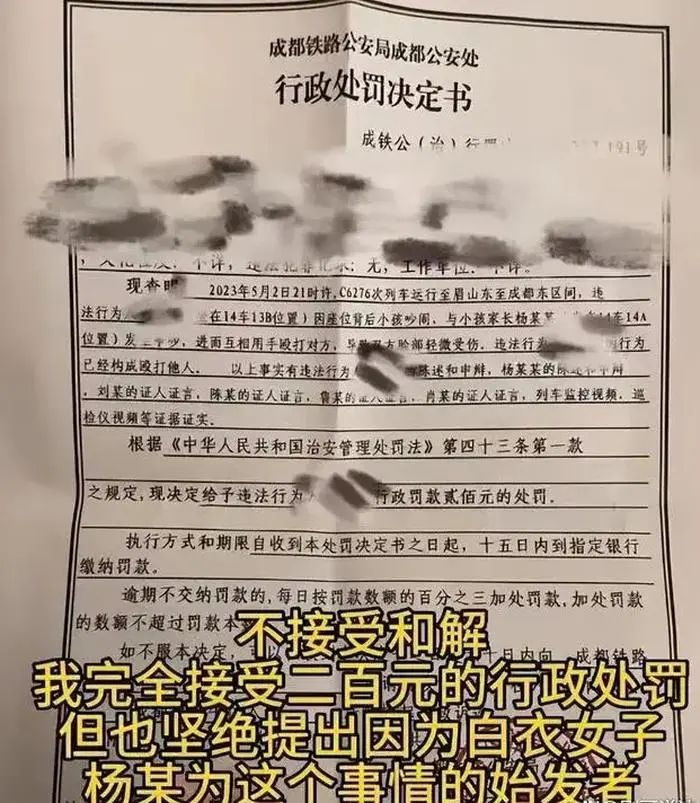 成都铁路公安局成都公安处
行政处罚决定书
成铁公(治)行罚 191号
不详, 违法犯罪记录: 无, 工作单位: 不详。
现查明 2023年5月2日21时许, C6276次列车运行至眉山东至成都东区间, 违
法行为 坐在14车13B位置) 因座位背后小孩吵闹, 与小孩家长杨某某 14车14A
位置) 发生争吵, 进而互相用手殴打对方, 导致双方脸部轻微受伤。违法行为 的行为
已经构成殴打他人。 以上事实有违法行为 陈述和申辩, 杨某某的陈述和申辩
, 刘某的证人证言, 陈某的证人证言, 詹某的证人证言, 肖某的证人证言, 列车监控视频, 巡
检仪视频等证据证实。
根据《中华人民共和国治安管理处罚法》第四十三条第一款
之规定, 现决定给予违法行为 行政罚款贰佰元的处罚.
执行方式和期限自收到本处罚决定书之日起, 十五日内到指定银行
缴纳罚款。
逾期不交纳罚款的, 每日按罚款数额的百分之三加处罚款, 加处罚款
的数额不超过罚款本
如不服本决定, 十日内向 成都铁路
不接受和解
我完全接受二百元的行政处罚
但也坚绝提出因为白衣女子
杨某为这个事情的始发者